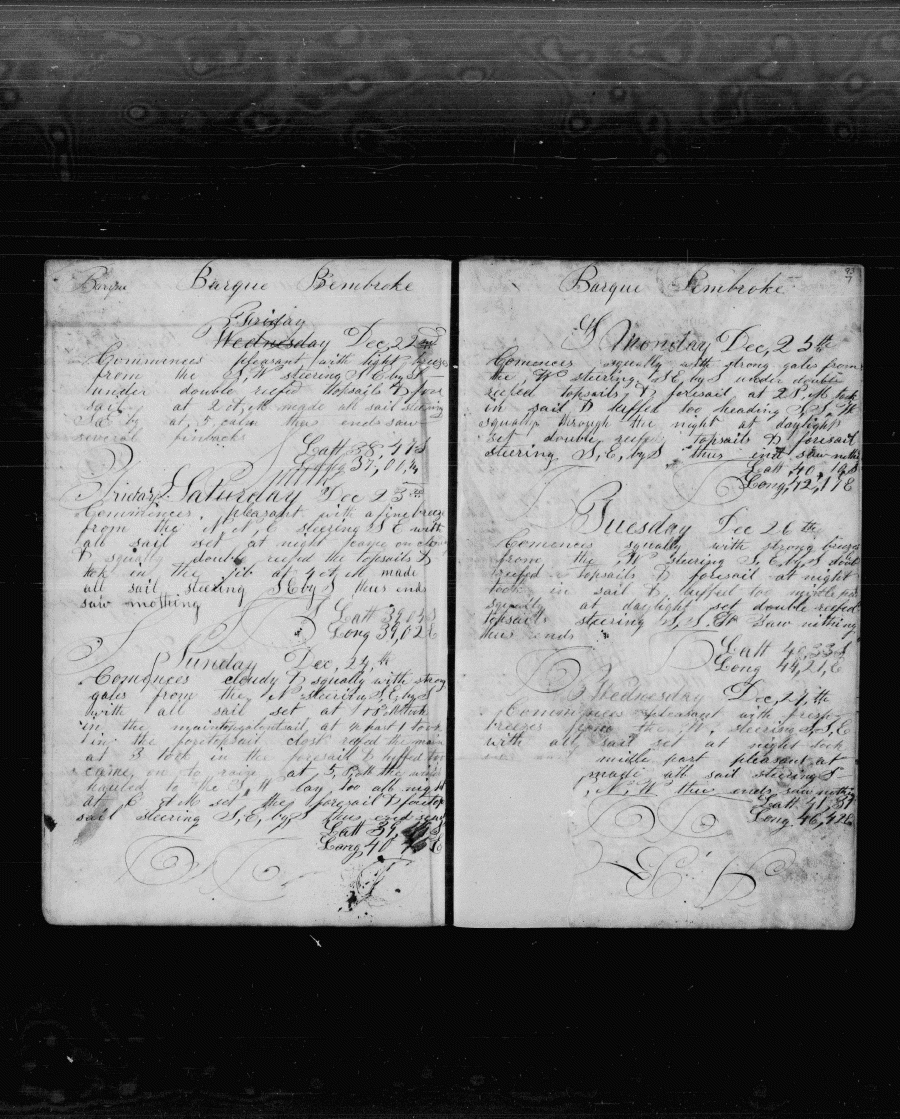 Barque Barque Pembroke
Friday
Wednesday Dec, 22nd
Commences pleasant with light breeze
from the S, W steering S E by S
under double reefed topsails & fore
sail at 2 A, M made all sail steering
S E by at, 5 calm thus ends saw
several finbacks
Latt 38, 47 S
37, 01,
Friday Saturday Dec 23rd
Commences pleasant with a fine breeze
from the N at E steering S E with
all sail set at night came on
& squally double reefed the topsails &
tok in the jib at 4 A, M made
all sail steering S E by S thus ends
saw nothing
Latt 39,04 S
Long 39,02 E
Sunday Dec, 24,th
Comences cloudy & squally with strong
gales from the N steering S, E, by S
with all sail set at 11
in the maintopgalentsail, at part 1 took
in the foretopsail clost reefed the main
at 3 tock in the foresail & luffed too
came on to raige at 5, the wind
hauled to the S, W lay too all night
at 6 A M set the foresail & foretop
sail steering S, E, by S thus ends
Latt 39,
Long, 40
93
Barque Pembroke
Monday Dec, 25th
Comences squally with strong gales from
the, W steering, S E by S under double
reefed topsails, & foresail at 2 P, M took
in sail & luffed too heading S, S, W
squaly through the night at daylight
set double reefed topsails & foresail
steering S, E, by S thus end saw nothin
Latt 40, 19 S
Long, 42, 11 E
Tuesday Dec 26 th
Comences squally with strong breezes
from the, W steering S, E, by S doub
reefed topsails & foresail at night
took in sail & luffed too middle par
squally at daylight set double reefed
topsails steering S, S, W saw nothing
thus ends
Latt 40,33 S
Long 44,21, E
Wednesday Dec, 27,th
Commences pleasant with fresh
breezes from the, W, steering S, S, E
with all sail set at night took
middle part pleasant at
made all sail steering S
thus ends saw nothin
Latt 41, S
Long 46,42 E